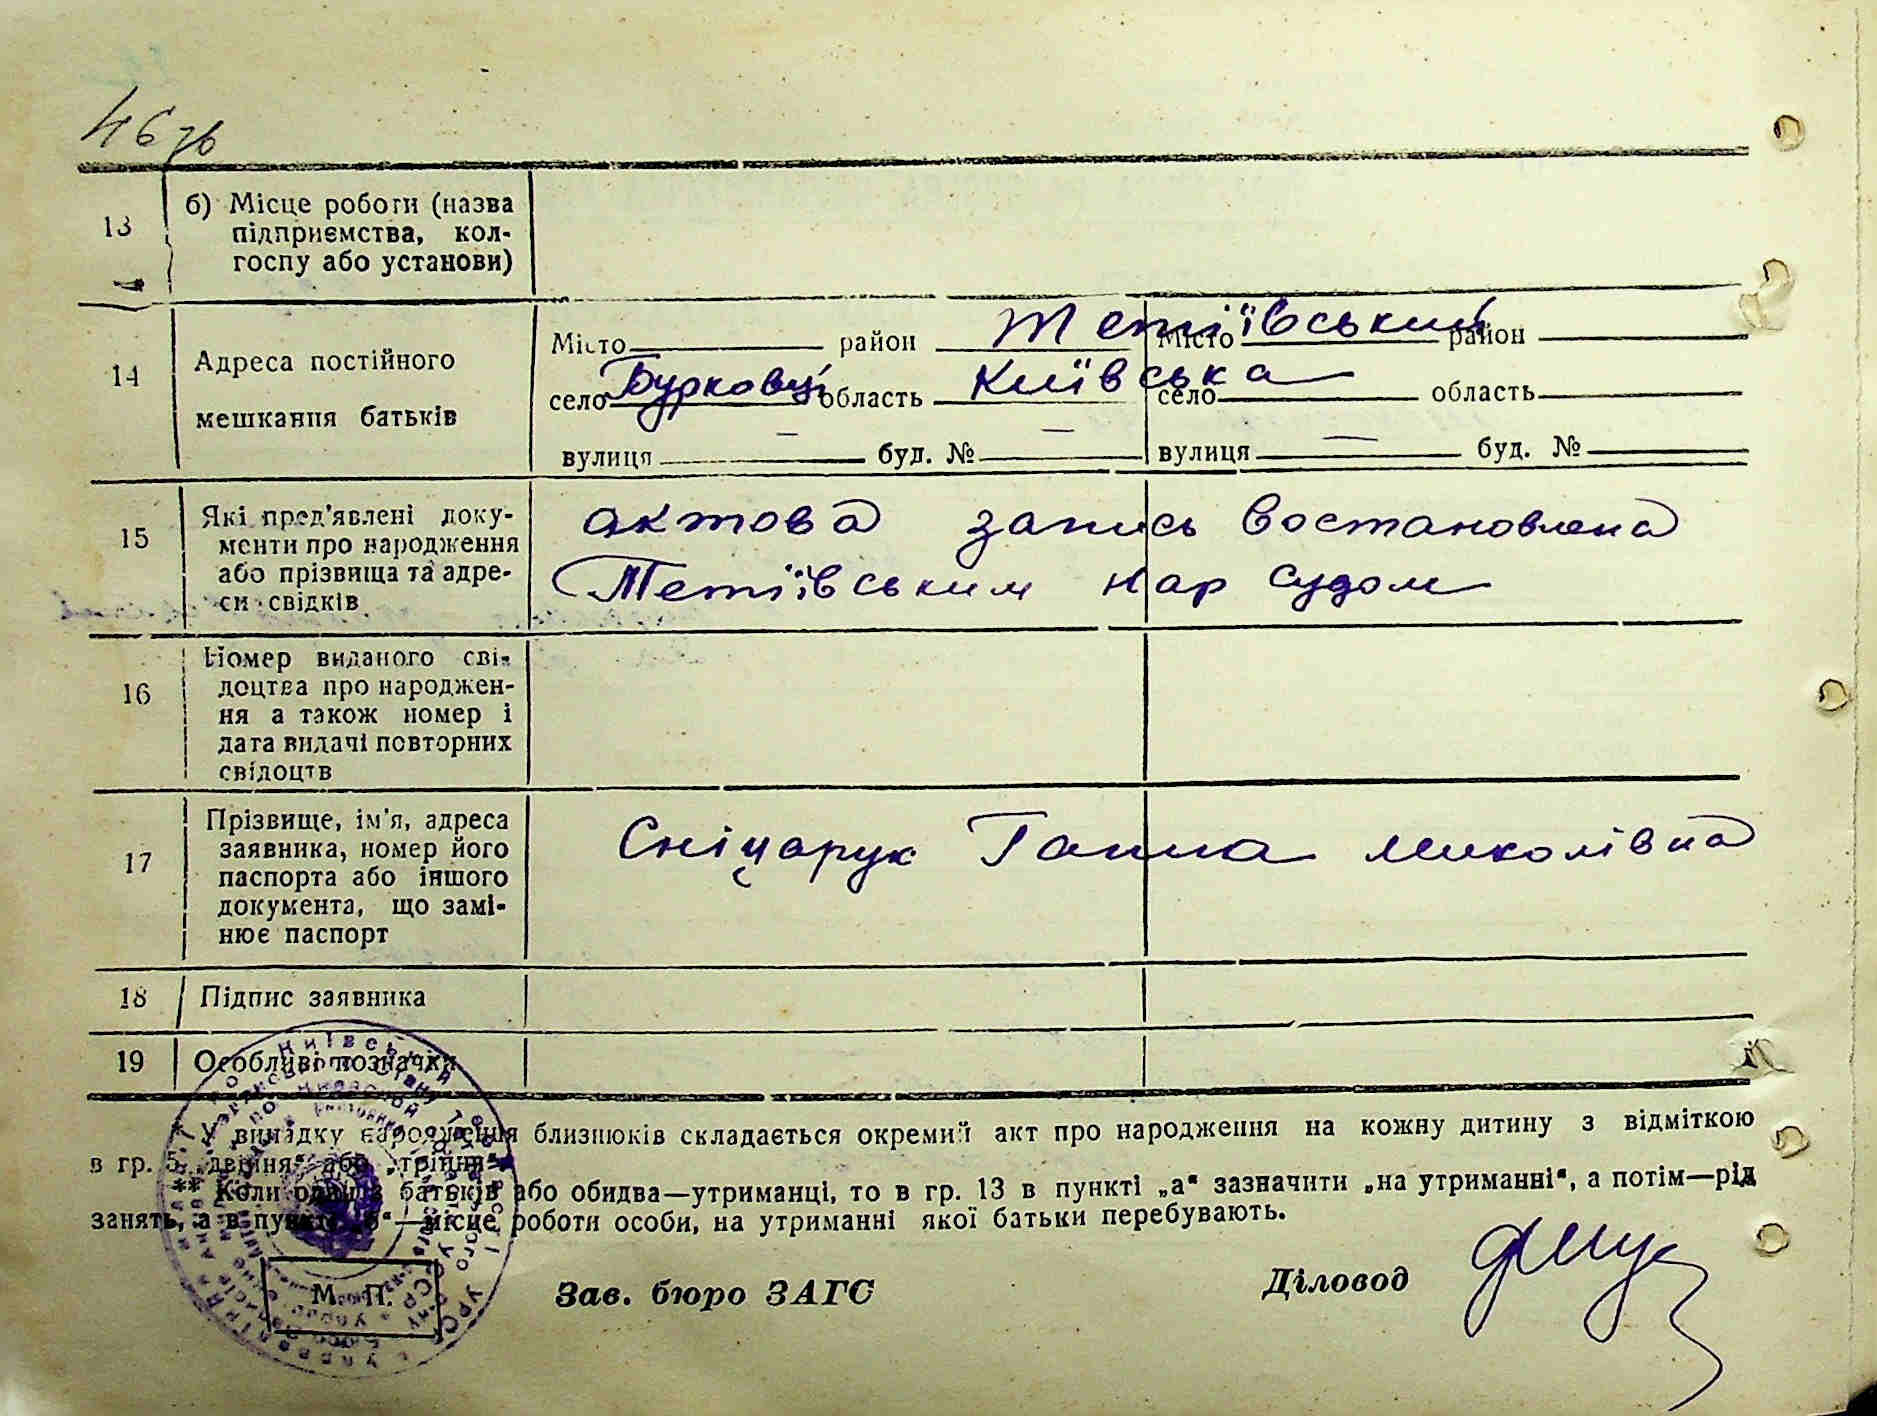 46 зв
13
б) Місце роботи (назва
підприємства, кол-
госпу або установи)
14
Адреса постійного
мешкання батьків
Місто район Тетіївський Місто район
село Бурковці область Київська село область
вулиця — буд. № — вулиця — буд. №
15
Які пред'явлені доку-
менти про народження
або прізвища та адре-
си свідків
актова запись востановлена
Тетіївським нар судом
16
Номер виданого сві-
доцтва про народжен-
ня а також номер і
дата видачі повторних
свідоцтв
17
Прізвище, ім'я, адреса
заявника, номер його
паспорта або іншого
документа, що замі-
нює паспорт
Сніцарук Ганна Миколівна
18
Підпис заявника
19
Особливі позначки
* У випадку народження близнюків складається окремий акт про народження на кожну дитину з відміткою
в гр. 5 „двійня" або „трійня".
** Коли один з батьків або обидва—утриманці, то в гр. 13 в пункті „а" зазначити „на утриманні", а потім—рід
занять, а в пункті „б"—місце роботи особи, на утриманні якої батьки перебувають.
М. П.
Зав. бюро ЗАГС
Діловод